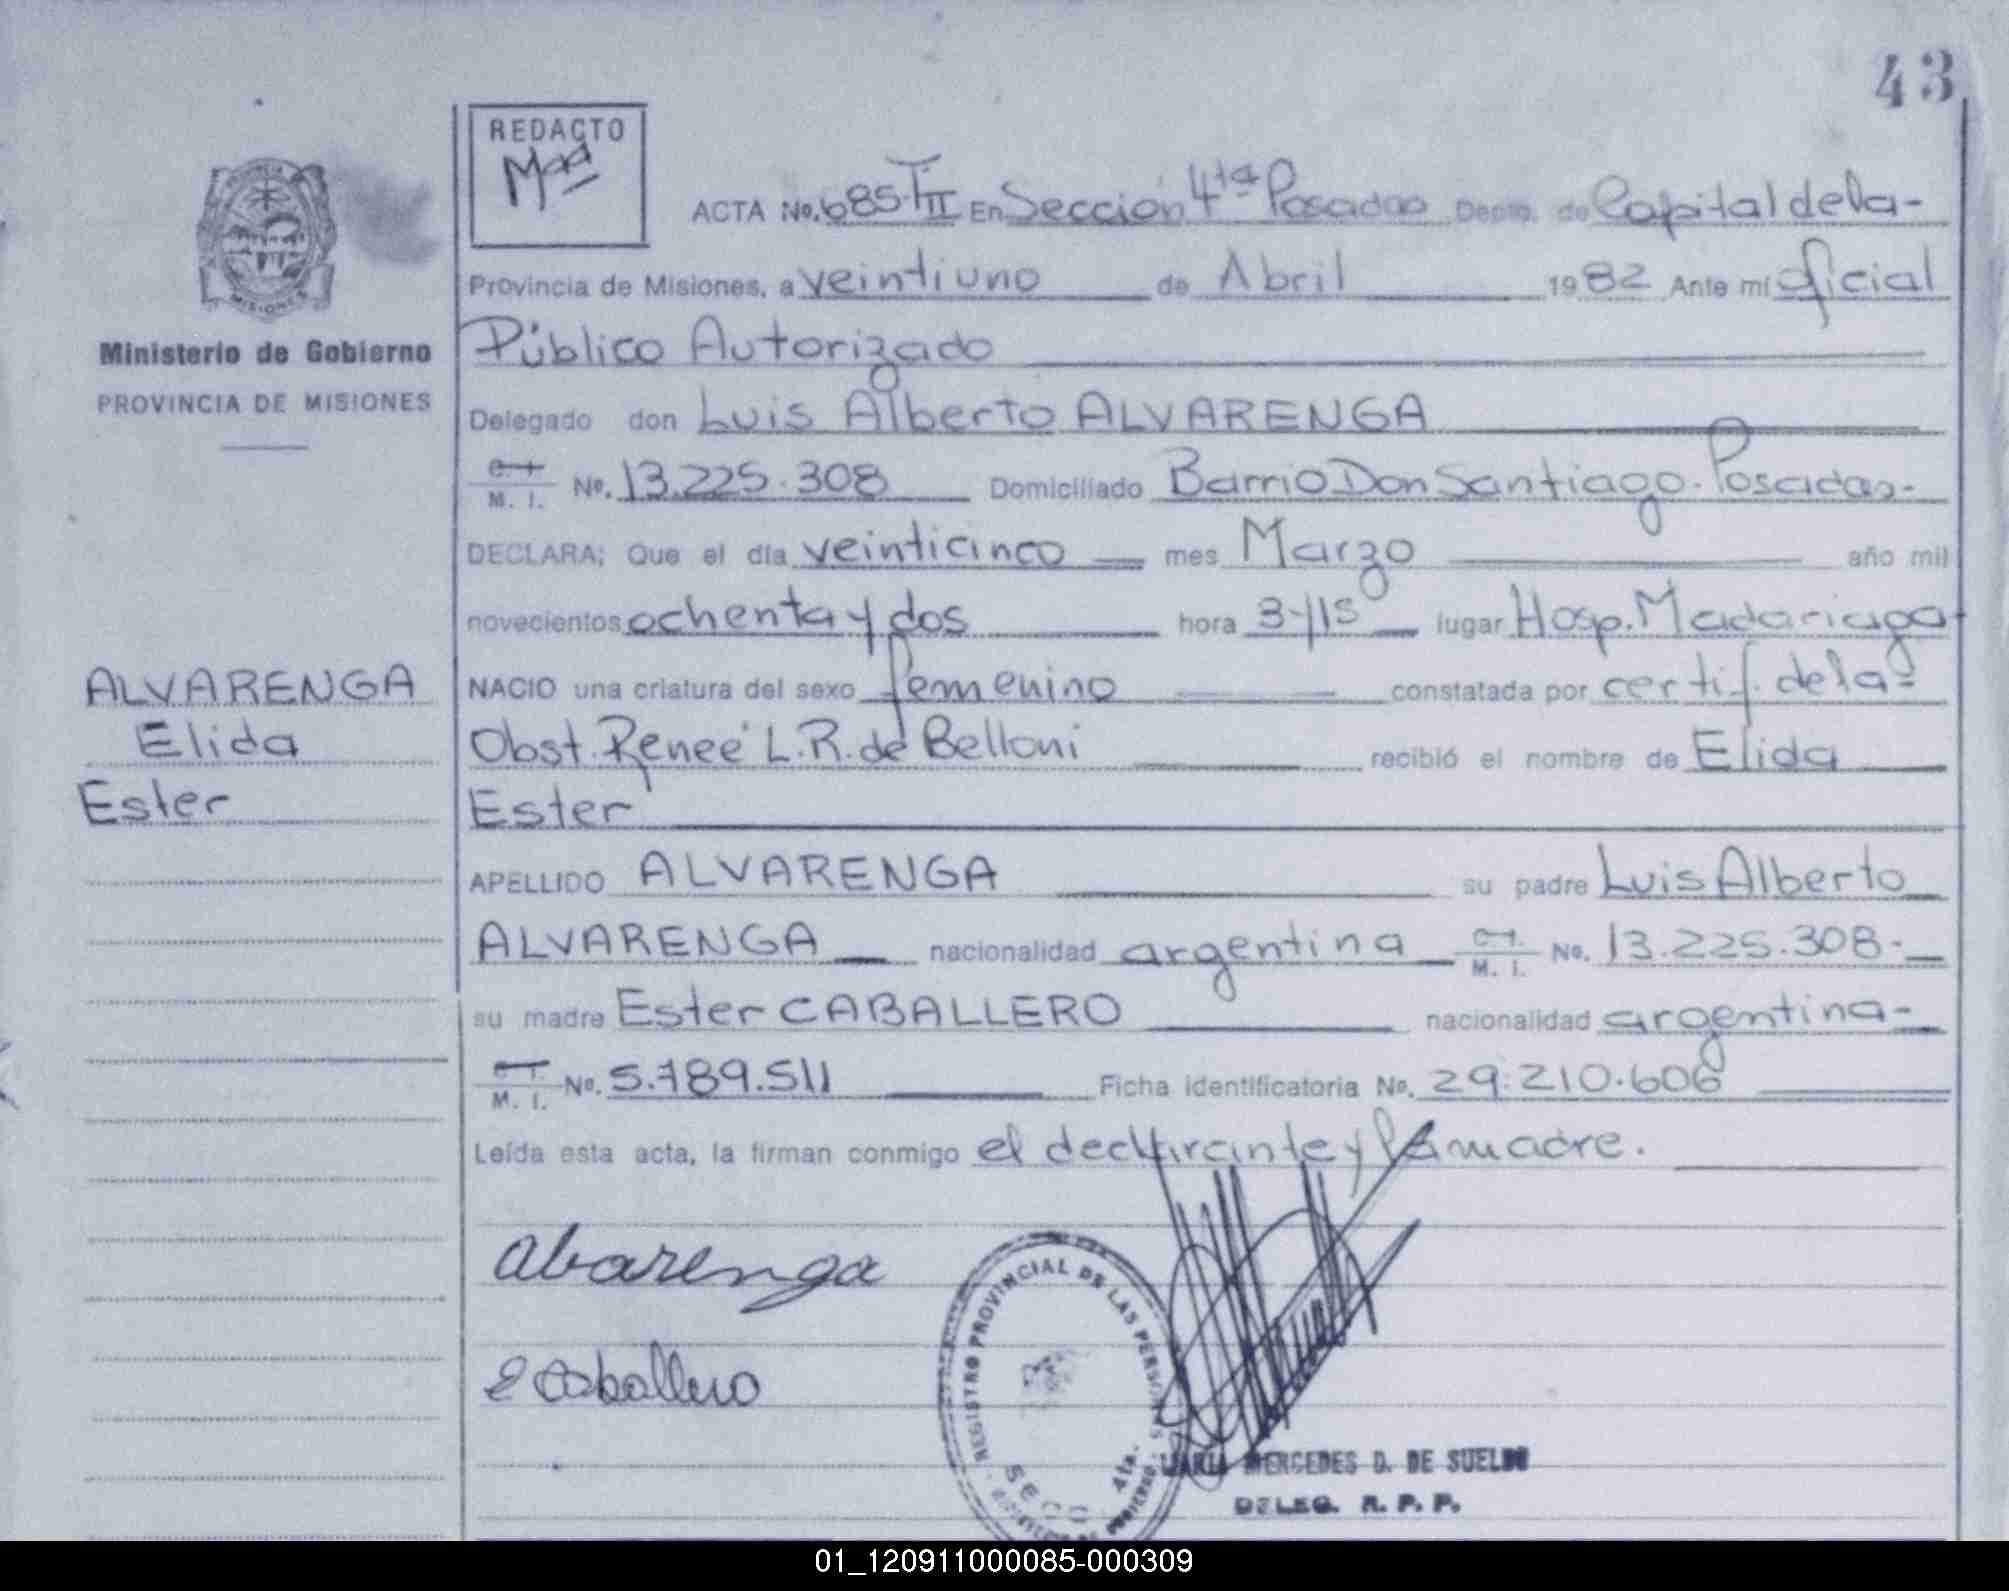 43
REDACTO
Mad
ACTA No. 685-TII En Sección 4ta Posadas Depto. de Capital de la-
MISIONES
Provincia de Misiones, a veintiuno de Abril 1982 Ante mí oficial
Ministerio de Gobierno
Público Autorizado
PROVINCIA DE MISIONES
Delegado don Luis Alberto ALVARENGA
M. I. No. 13.225.308 Domiciliado Barrio Don Santiago. Posadas.-
DECLARA; Que el día veinticinco mes Marzo año mil
novecientos ochenta y dos hora 3-15 lugar Hosp. Madariaga
ALVARENGA
NACIO una criatura del sexo femenino constatada por certif. de la-
Elida
Obst. Reneé L.R. de Belloni recibió el nombre de Elida
Ester
Ester
APELLIDO ALVARENGA su padre Luis Alberto
ALVARENGA nacionalidad argentina M. I. No. 13.225.308.-
su madre Ester CABALLERO nacionalidad argentina-
M. I. No. 5.789.511 Ficha identificatoria No. 29.210.606
Leída esta acta, la firman conmigo el declarante y la madre.
Alvarenga
E Caballero
REGISTRO PROVINCIAL DE LAS PERSONAS
SECC 4ta.
MARIA MERCEDES D. DE SUELDO
DELEG. R. P. P.
01_120911000085-000309